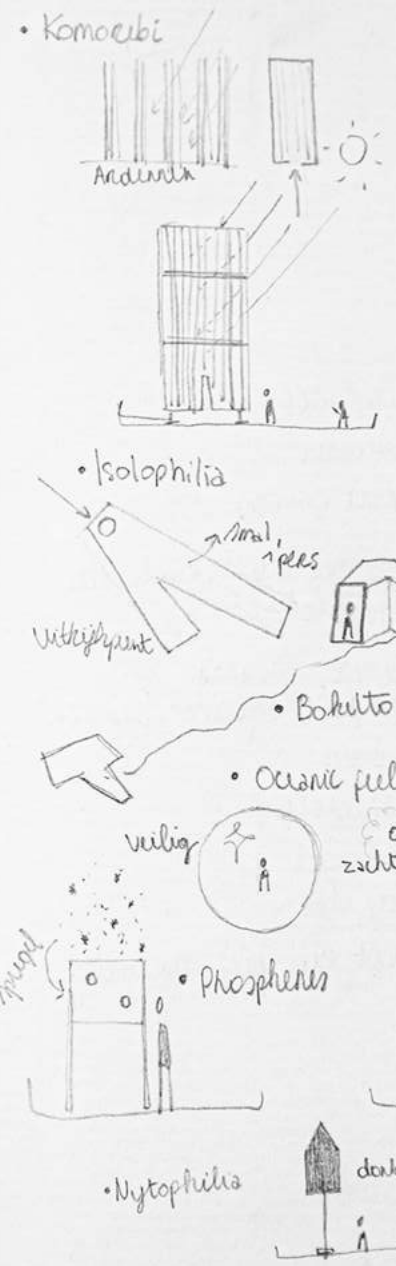 • Komorebi
Ardennen
• Isolophilia
smal,
1 pers
uitkijkpunt
• Bokutto
• Oceanic feel
veilig
zacht
spiegel
• Phosphenes
• Nytophilia
donk